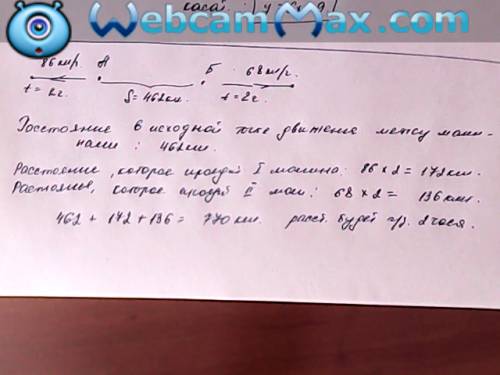 WebcamMax.com
86 км/г. А Б 68 км/г.
t = 2г. S = 462км. t = 2г.
Расстояние в исходной точке движения между маши-
нами : 462км.
Расстояние, которое пройдй I машина: 86 × 2 = 172 км.
Растояние, которое пройдй II маш: 68 × 2 = 136 км.
462 + 172 + 136 = 770 км. расст. будет 2 часа.